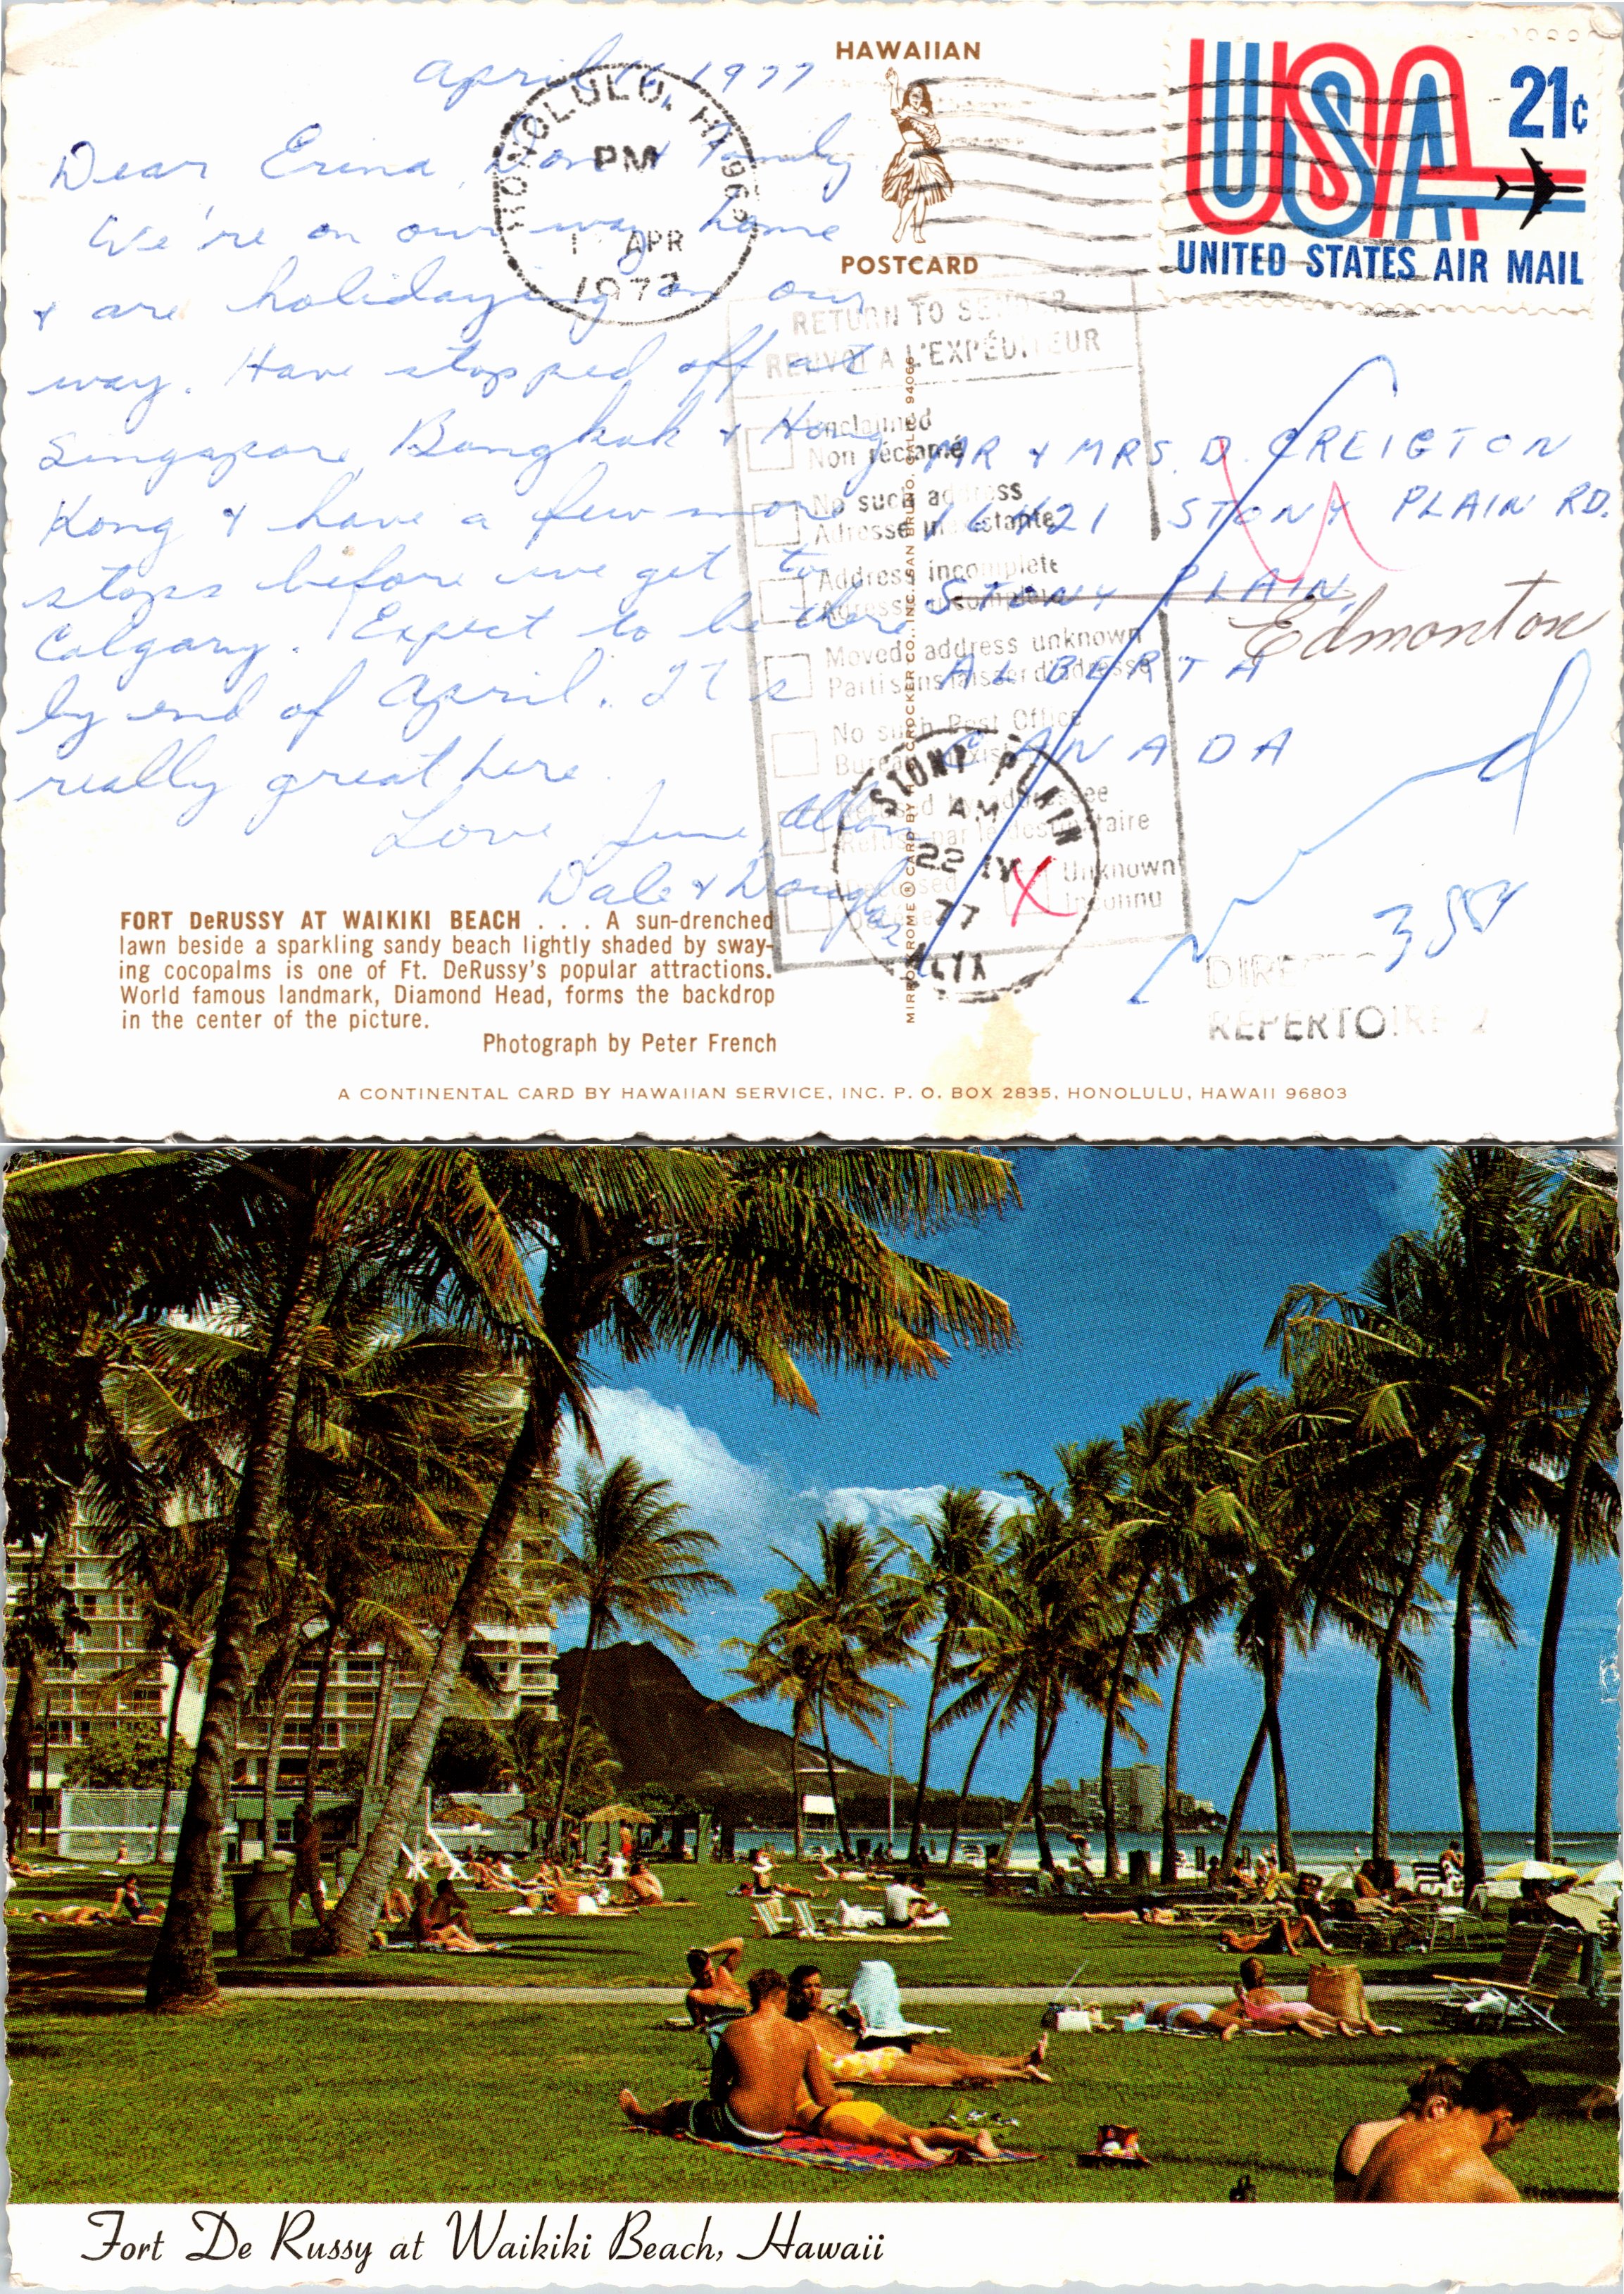 April 16, 1977
Dear Erina, Don & Family
We're on our way home
& are holidaying on our
way. Have stopped off at
Singapore, Bangkok & Hong
Kong & have a few more
stops before we get to
Calgary. Expect to be there
by end of April. It is
really great here.
Love June, Allan,
Dale & Douglas
FORT DeRUSSY AT WAIKIKI BEACH . . . A sun-drenched
lawn beside a sparkling sandy beach lightly shaded by sway-
ing cocopalms is one of Ft. DeRussy's popular attractions.
World famous landmark, Diamond Head, forms the backdrop
in the center of the picture.
Photograph by Peter French
HONOLULU, HI 968
PM
APR
1977
HAWAIIAN
POSTCARD
USA
21¢
UNITED STATES AIR MAIL
RETURN TO SENDER
RENVOI A L'EXPÉDITEUR
Unclaimed
Non réclamé
No such address
Adresse inexistante
Address incomplete
Adresse incomplète
Moved, address unknown
Parti sans laisser d'adresse
No such Post Office
Bureau
Refused by addressee
Refusé par le destinataire
Deceased
Unknown
Inconnu
X
MR & MRS. D. CREIGTON
16421 STONY PLAIN RD.
STONY PLAIN,
Edmonton
ALBERTA
CANADA
STONY PLAIN
AM
22 IV
77
ALTA
DIRECTO
REPERTOIRE
MIRRO-KROME ® CARD BY H.S. CROCKER CO., INC. SAN BRUNO, CALIF. 94066
A CONTINENTAL CARD BY HAWAIIAN SERVICE, INC. P. O. BOX 2835, HONOLULU, HAWAII 96803
Fort De Russy at Waikiki Beach, Hawaii